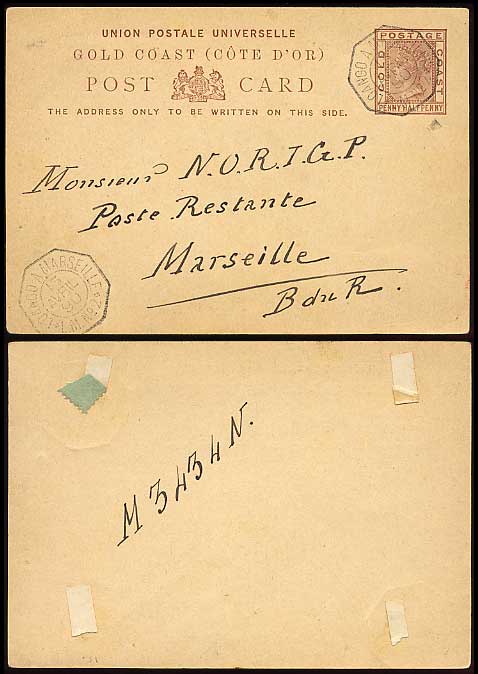 UNION POSTALE UNIVERSELLE
GOLD COAST (CÔTE D'OR)
POST CARD
THE ADDRESS ONLY TO BE WRITTEN ON THIS SIDE.
POSTAGE
GOLD COAST
PENNY HALFPENNY
LOANGO A
Monsieur N.O.R.I.G.P.
Poste Restante
Marseille
B du R.
LOANGO A MARSEILLE
M 3434 N.